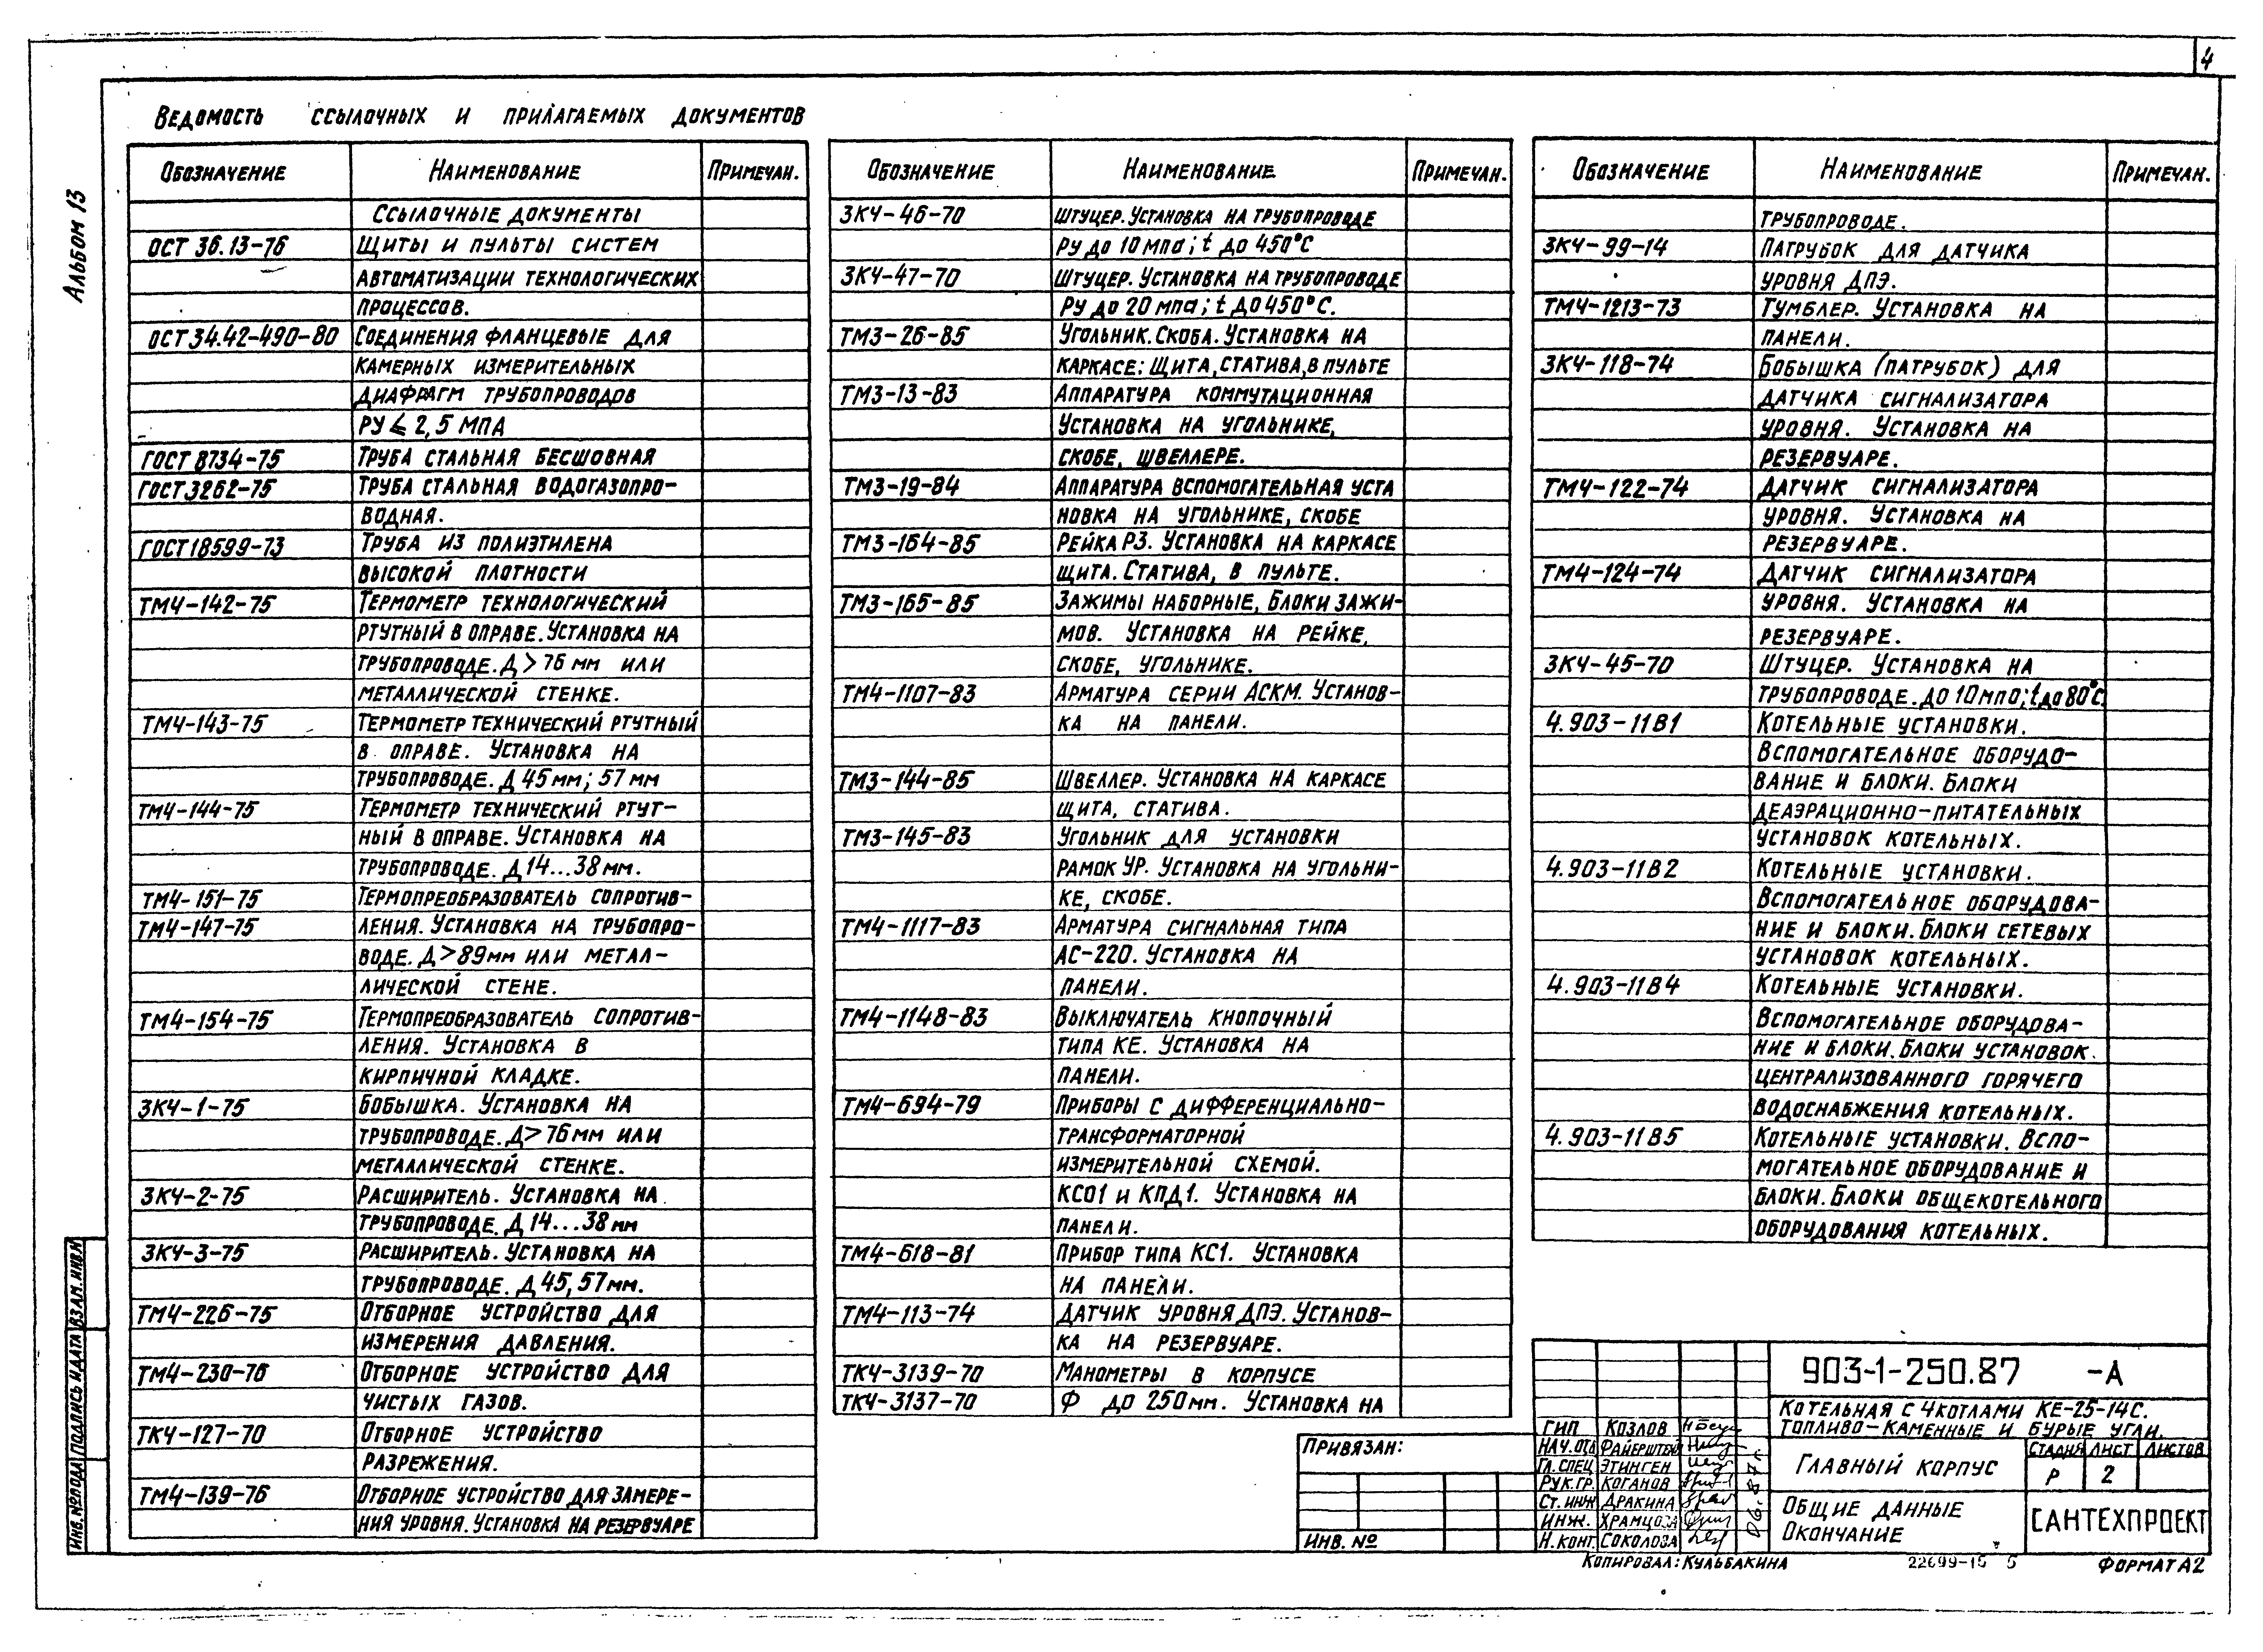 4
Альбом 13
Ведомость ссылочных и прилагаемых документов
Обозначение Наименование Примечан.
Ссылочные документы
ОСТ 36.13-76 Щиты и пульты систем
автоматизации технологических
процессов.
ОСТ 34.42-490-80 Соединения фланцевые для
камерных измерительных
диафрагм трубопроводов
Ру ⩽ 2,5 МПа
ГОСТ 8734-75 Труба стальная бесшовная
ГОСТ 3262-75 Труба стальная водогазопро-
водная.
ГОСТ 18599-73 Труба из полиэтилена
высокой плотности
ТМ4-142-75 Термометр технологический
ртутный в оправе. Установка на
трубопроводе. Д > 76 мм или
металлической стенке.
ТМ4-143-75 Термометр технический ртутный
в оправе. Установка на
трубопроводе. Д 45 мм; 57 мм
ТМ4-144-75 Термометр технический ртут-
ный в оправе. Установка на
трубопроводе. Д 14...38 мм.
ТМ4-151-75 Термопреобразователь сопротив-
ТМ4-147-75 ления. Установка на трубопро-
воде. Д > 89 мм или метал-
лической стене.
ТМ4-154-75 Термопреобразователь сопротив-
ления. Установка в
кирпичной кладке.
ЗК4-1-75 Бобышка. Установка на
трубопроводе. Д > 76 мм или
металлической стенке.
ЗК4-2-75 Расширитель. Установка на
трубопроводе. Д 14...38 мм
ЗК4-3-75 Расширитель. Установка на
трубопроводе. Д 45, 57 мм.
ТМ4-226-75 Отборное устройство для
измерения давления.
ТМ4-230-76 Отборное устройство для
чистых газов.
ТК4-127-70 Отборное устройство
разрежения.
ТМ4-139-76 Отборное устройство для замере-
ния уровня. Установка на резервуаре
Обозначение Наименование Примечан.
ЗК4-46-70 Штуцер. Установка на трубопроводе
Ру до 10 мпа; t до 450°С
ЗК4-47-70 Штуцер. Установка на трубопроводе
Ру до 20 мпа; t до 450°С.
ТМ3-26-85 Угольник. Скоба. Установка на
каркасе: щита, статива, в пульте
ТМ3-13-83 Аппаратура коммутационная
Установка на угольнике,
скобе, швеллере.
ТМ3-19-84 Аппаратура вспомогательная уста
новка на угольнике, скобе
ТМ3-164-85 Рейка РЗ. Установка на каркасе
щита. Статива, в пульте.
ТМ3-165-85 Зажимы наборные, Блоки зажи-
мов. Установка на рейке,
скобе, угольнике.
ТМ4-1107-83 Арматура серии АСКМ. Установ-
ка на панели.
ТМ3-144-85 Швеллер. Установка на каркасе
щита, статива.
ТМ3-145-83 Угольник для установки
рамок УР. Установка на угольни-
ке, скобе.
ТМ4-1117-83 Арматура сигнальная типа
АС-220. Установка на
панели.
ТМ4-1148-83 Выключатель кнопочный
типа КЕ. Установка на
панели.
ТМ4-694-79 Приборы с дифференциально-
трансформаторной
измерительной схемой.
КС01 и КПД1. Установка на
панели.
ТМ4-618-81 Прибор типа КС1. Установка
на панели.
ТМ4-113-74 Датчик уровня ДПЭ. Установ-
ка на резервуаре.
ТК4-3139-70 Манометры в корпусе
ТК4-3137-70 Ф до 250 мм. Установка на
Обозначение Наименование Примечан.
трубопроводе.
ЗК4-99-14 Патрубок для датчика
уровня ДПЭ.
ТМ4-1213-73 Тумблер. Установка на
панели.
ЗК4-118-74 Бобышка (патрубок) для
датчика сигнализатора
уровня. Установка на
резервуаре.
ТМ4-122-74 Датчик сигнализатора
уровня. Установка на
резервуаре.
ТМ4-124-74 Датчик сигнализатора
уровня. Установка на
резервуаре.
ЗК4-45-70 Штуцер. Установка на
трубопроводе. до 10 мпа; t до 80°С.
4.903-11В1 Котельные установки.
Вспомогательное оборудо-
вание и блоки. Блоки
деаэрационно-питательных
установок котельных.
4.903-11В2 Котельные установки.
Вспомогательное оборудова-
ние и блоки. Блоки сетевых
установок котельных.
4.903-11В4 Котельные установки.
Вспомогательное оборудова-
ние и блоки. Блоки установок
централизованного горячего
водоснабжения котельных.
4.903-11В5 Котельные установки. Вспо-
могательное оборудование и
блоки. Блоки общекотельного
оборудования котельных.
Инв. № подл Подпись и дата Взам. инв. №
Привязан:
Инв. №
ГИП Козлов
Нач. отд Файерштейн
Гл. спец Этинген
Рук. гр. Коганов
Ст. инж Дракина
Инж. Храмцова
Н. конт. Соколова
06.87г.
903-1-250.87 -А
Котельная с 4 котлами КЕ-25-14С.
Топливо-каменные и бурые угли.
Главный корпус
Стадия Лист Листов
Р 2
Общие данные
Окончание
САНТЕХПРОЕКТ
Копировал: Кульбакина
22699-15 5
Формат А2